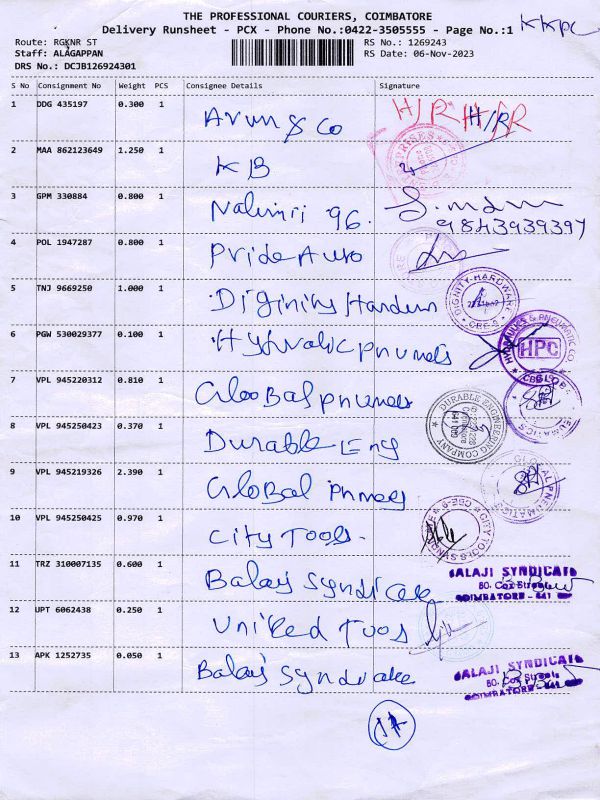 THE PROFESSIONAL COURIERS, COIMBATORE
Delivery Runsheet - PCX - Phone No.:0422-3505555 - Page No.:1
KKPC
Route: RGKNR ST RS No.: 1269243
Staff: ALAGAPPAN RS Date: 06-Nov-2023
DRS No.: DCJB126924301
S No Consignment No Weight PCS Consignee Details Signature
1 DDG 435197 0.300 1 Arun & Co H/R H/R
2 MAA 862123649 1.250 1 KB
3 GPM 330884 0.800 1 96. 9843939397
4 POL 1947287 0.800 1 Pride Auto
5 TNJ 9669250 1.000 1 DIGNITY HARDWARE CBE
6 PGW 530029377 0.100 1 HYDRAULICS & PNEUMATIC CO HPC CBE
7 VPL 945220312 0.810 1 Global
8 VPL 945250423 0.370 1 Durable Eng DURABLE ENGINEERING COMPANY
9 VPL 945219326 2.390 1 Global GLOBAL PNEUMATICS
10 VPL 945250425 0.970 1 City Tools. CITY TOOLS SYNDICATE CBE-9
11 TRZ 310007135 0.600 1 Balaji Syndicate BALAJI SYNDICATE
80. Cox Street
COIMBATORE - 641
12 UPT 6062438 0.250 1 United Tools
13 APK 1252735 0.050 1 Balaji Syndicate BALAJI SYNDICATE
80. Cox Street
COIMBATORE - 641